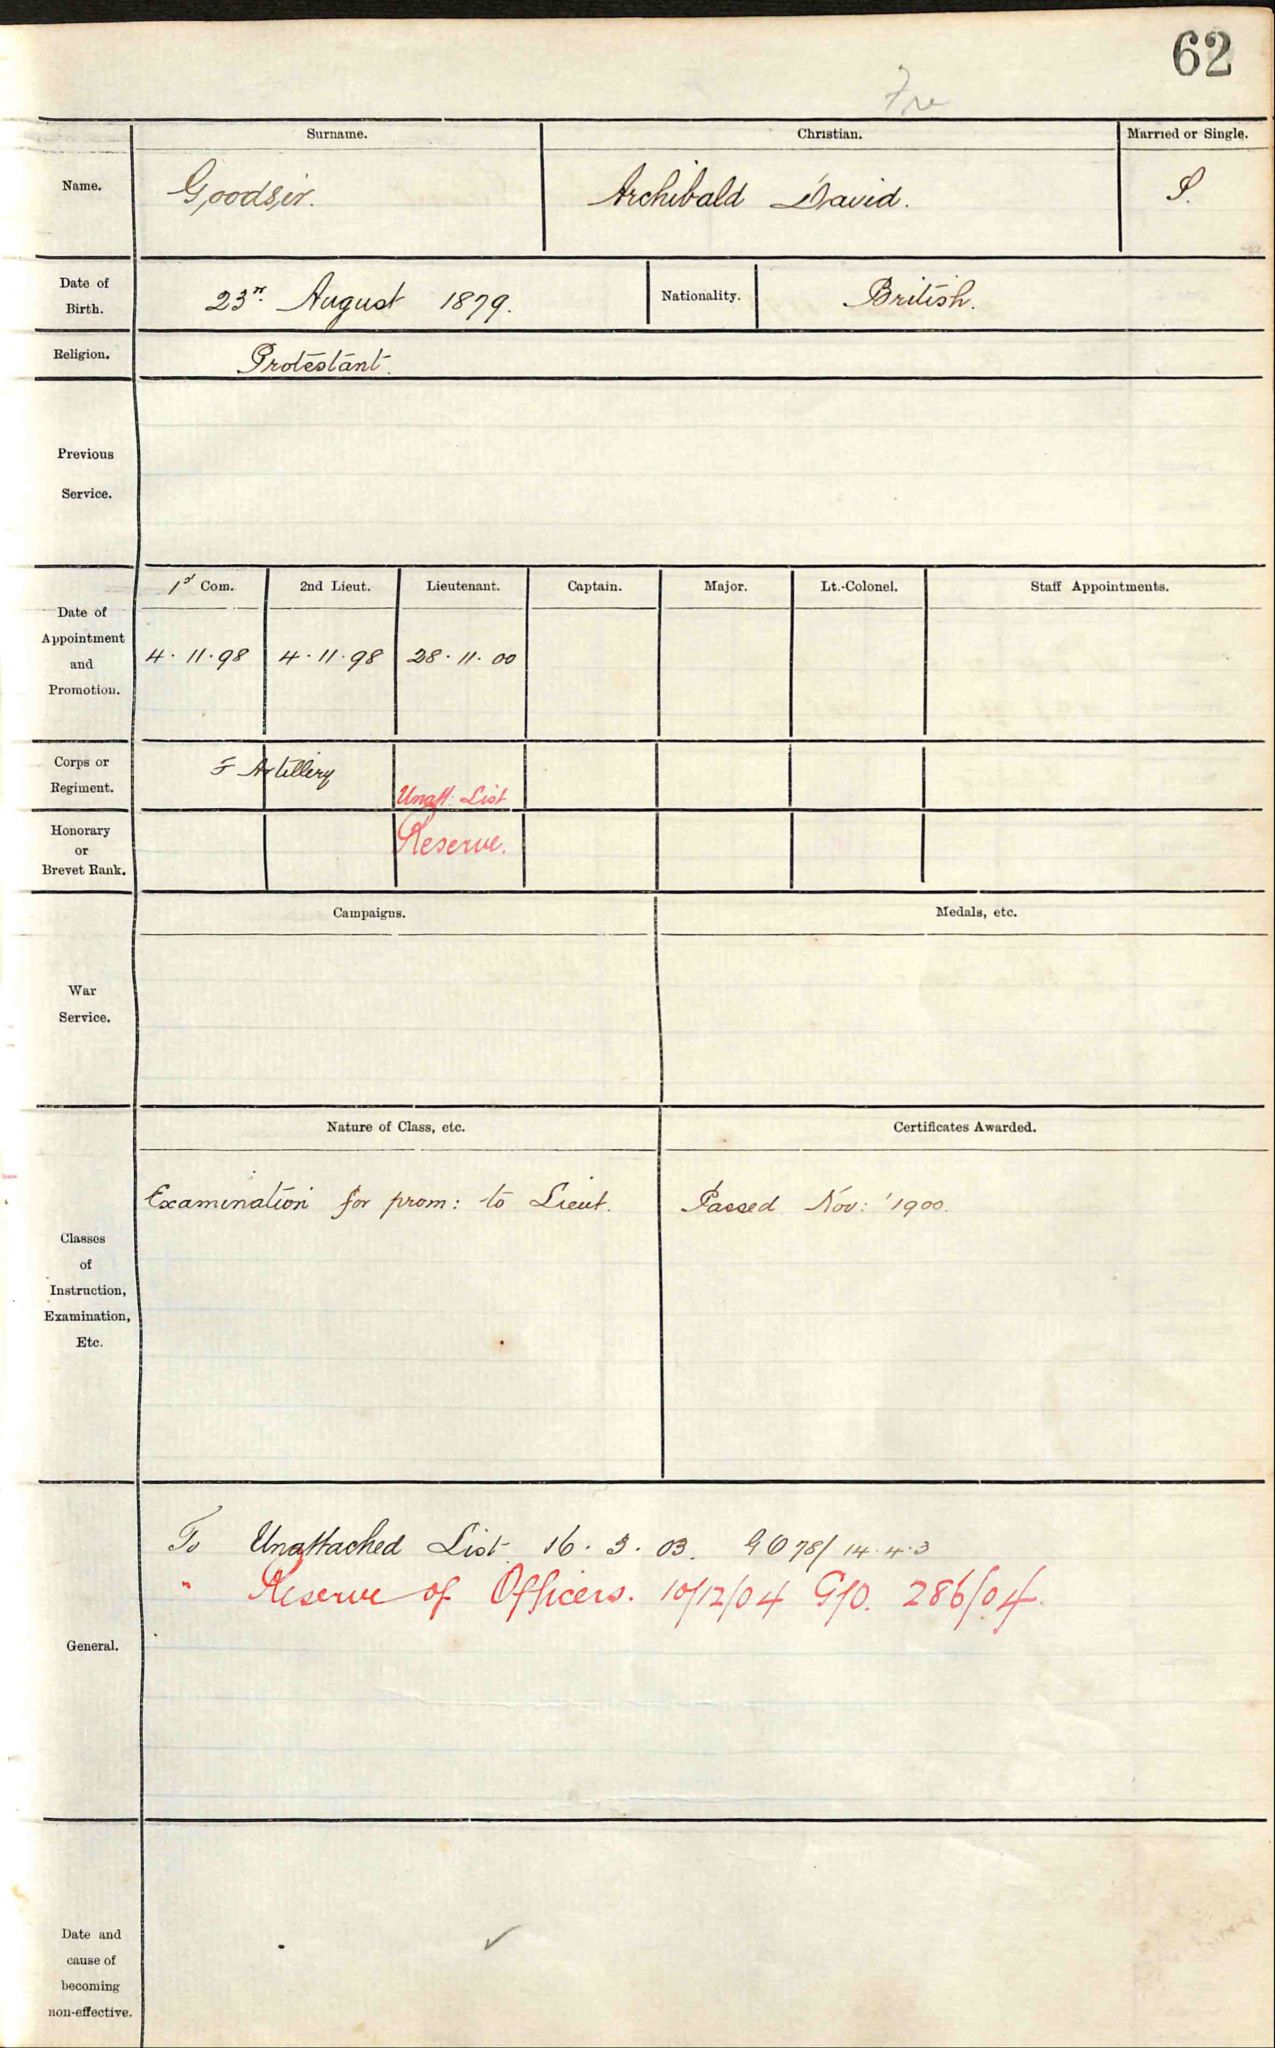 62
Surname. Christian. Married or Single.
Name. Goodsir. Archibald David. S.
Date of Birth. 23rd. August 1879. Nationality. British.
Religion. Protestant.
Previous
Service.
1st Com. 2nd Lieut. Lieutenant. Captain. Major. Lt.-Colonel. Staff Appointments.
Date of
Appointment
and
Promotion.
4.11.98 4.11.98 28.11.00
Corps or
Regiment.
F Artillery
Unatt: List
Honorary
or
Brevet Rank.
Reserve.
Campaigns. Medals, etc.
War
Service.
Nature of Class, etc. Certificates Awarded.
Examination for prom: to Lieut. Passed Nov: '1900.
Classes
of
Instruction,
Examination,
Etc.
To Unattached List. 16.3.03. GO 78/ 14.4.3
" Reserve of Officers. 10/12/04 G/O. 286/04.
General.
Date and
cause of
becoming
non-effective.